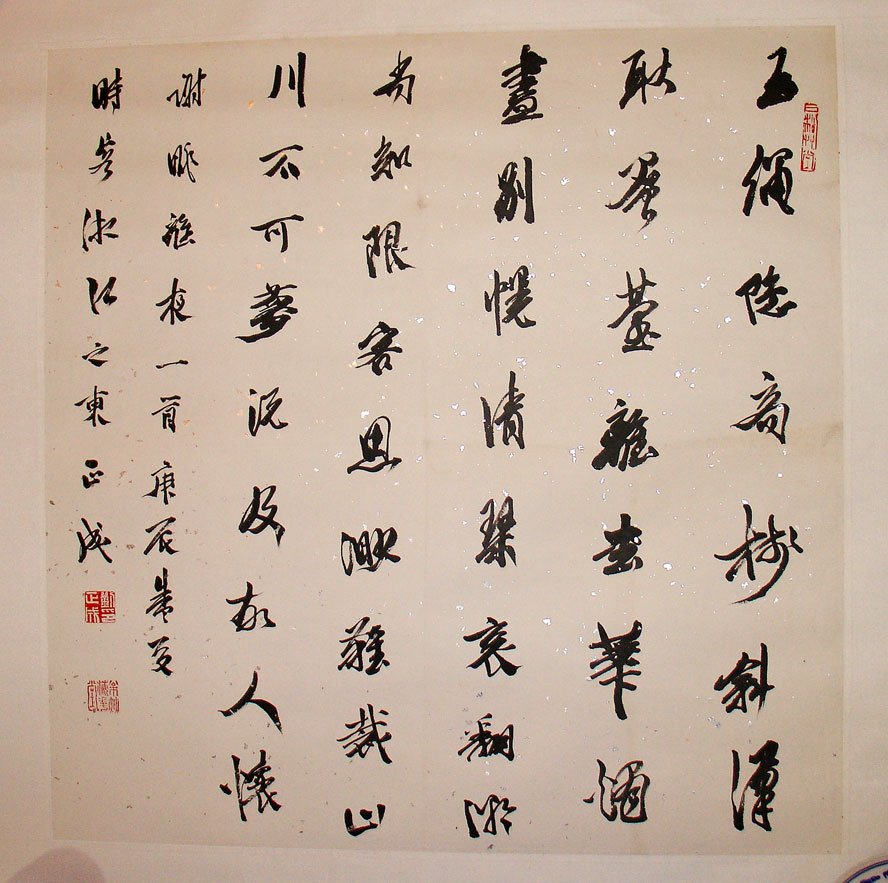 玉繩隐高樹斜漢
耿層臺離堂華燭
盡別幌清琴哀翻潮
尚知限客思渺難裁山
川不可夢況及故人懷
謝眺離夜一首庚辰夏
時客江之東正成